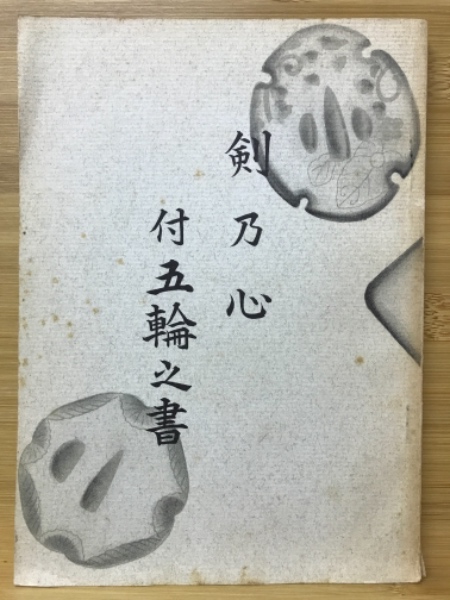 剣乃心
付五輪之書